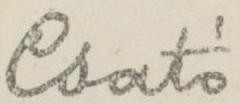 Csató